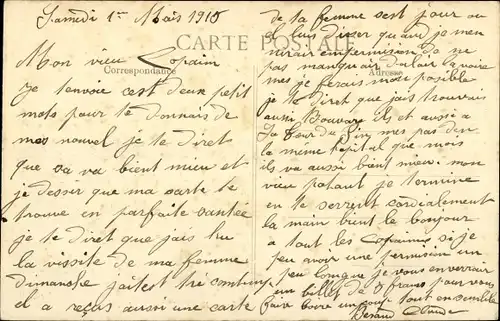 Samedi 1er Mais 1915
CARTE POSTALE
Correspondance
Adresse
Mon vieu Copain
Je tenvoie cest deux petit
mots pour te donnais de
mes nouvel je te diret
que sa va bient mieu et
je desser que ma carte te
trouve en parfaite santée
je te diret que jais hu
la vissite de ma femme
dimanche jaitest tre contemp
il a reçus aussi une carte
de ta femme sest jour ou
lui diser quand je men
nirair enpermision de ne
pas manquair dalair la voire
mes je ferais mote posible
je te diret que jais trouvais
aussi Bouvare ils et aussie a
La Tour du Pin mes pas den
la même hopital que mois
ils va aussi bient mieu. mon
vieu potaut je termine
en te serrent cordialement
la main bient le bonjour
a tout les Copains si je
peu avoire une permision un
peu longue je vous enverrair
un billet de 5 frans pour vous
faire boire un jour tout ensemble
Claude